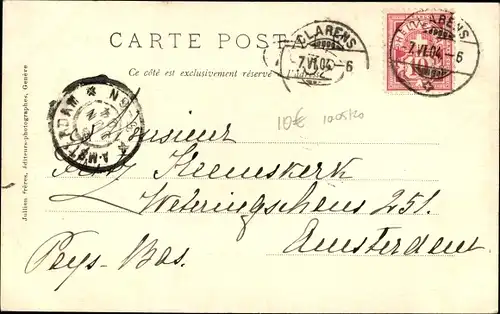 CARTE POST
CLARENS
7.VI.04.-6
HELVETIA
10
CLARENS
7.VI.04.-6
Ce côté est exclusivement réservé
AMSTERDAM
Jullien frères, éditeurs-photographes, Genève
10€
Monsieur
Heemskerk
Weteringschans 251.
Amsterdam
Pays-Bas.